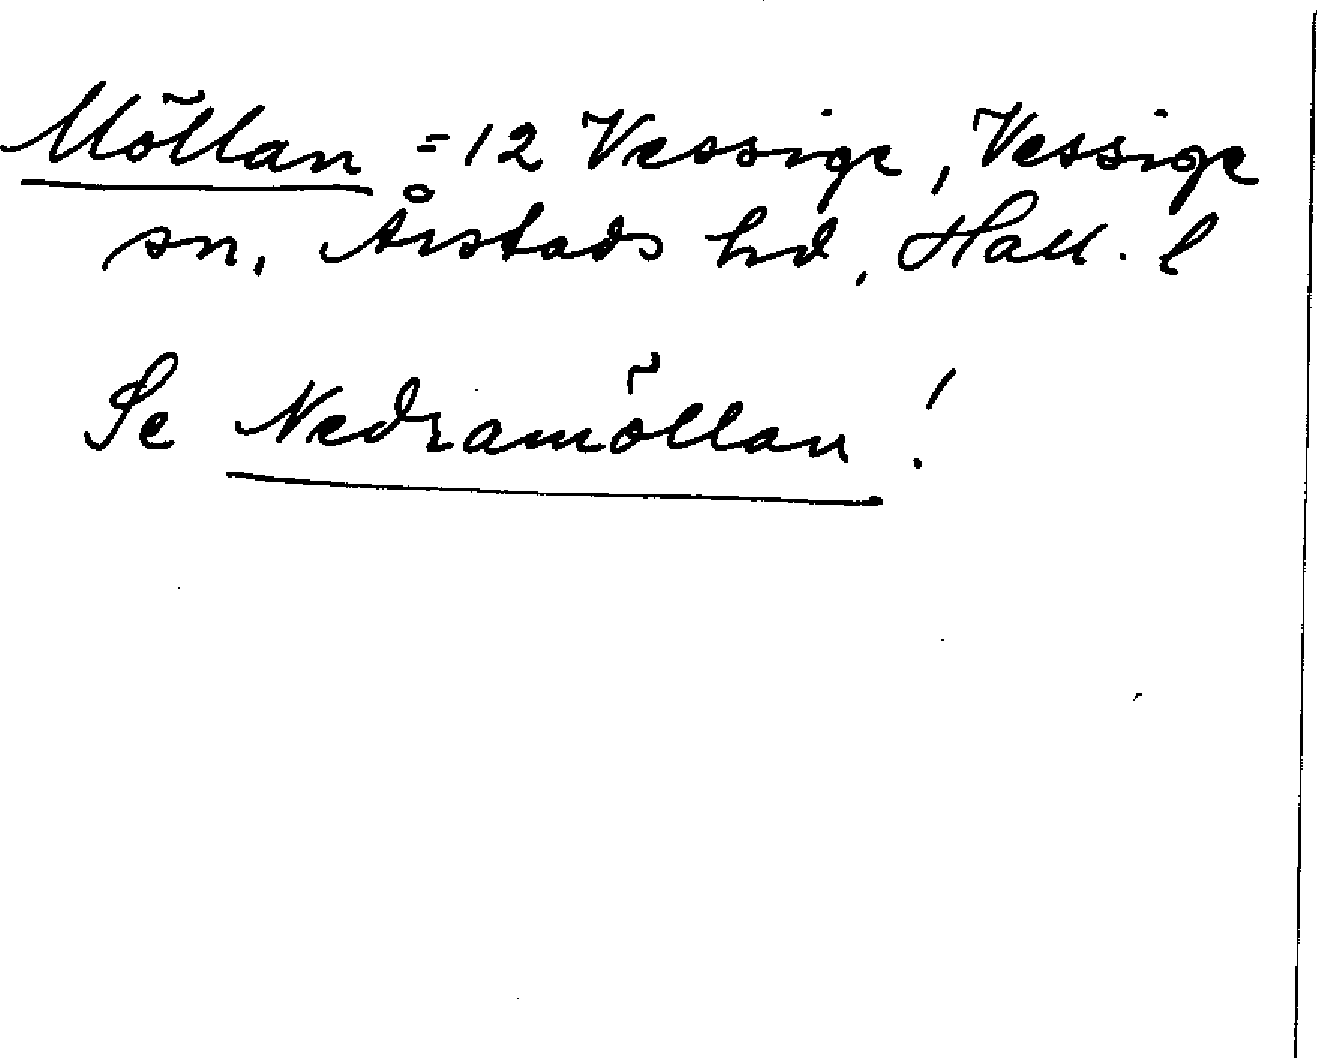 Möllan = 12 Vessige, Vessige
sn, Årstads hd, Hall. l
Se Nedramöllan!